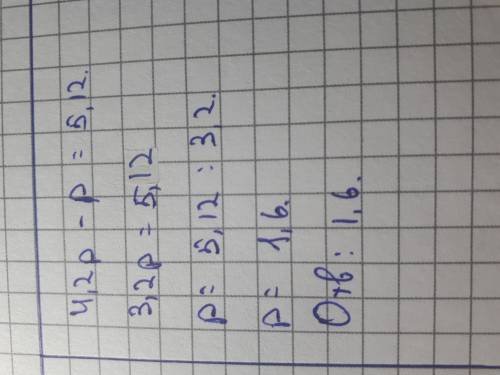 4,2p - p = 5,12.
3,2p = 5,12
p = 5,12 : 3 2.
p = 1,6.
Отв : 1,6.